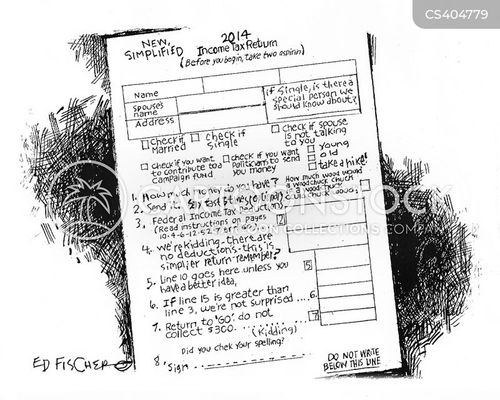 CS404779
NEW,
SIMPLIFIED
2014
Income Tax Return
(Before you begin, take two aspirin)
Name
Spouse's
name
Address
if Single, is there a
special person we
should know about?
Check if
Married
Check if
Single
Check if spouse
is not talking
to you
check if you want
to contribute to a
campaign fund
check if you want
politician to send
you money
young
old
take a hike!
1. How much money do you have?
2. Send it.
How much wood would
a woodchuck chuck
3. Federal Income Tax
(Read instructions on pages
4. We're kidding-there are
no deductions-this is
simplier return-remember?
5. Line 10 goes here unless you
have a better idea,
5
6. If line 15 is greater than
line 3, we're not surprised....6.
7. Return to "GO". do not
collect $300.... (Kidding)
7
Did you chek your spelling?
8. Sign
DO NOT WRITE
BELOW THIS LINE
ED FISCHER
CARTOONSTOCK